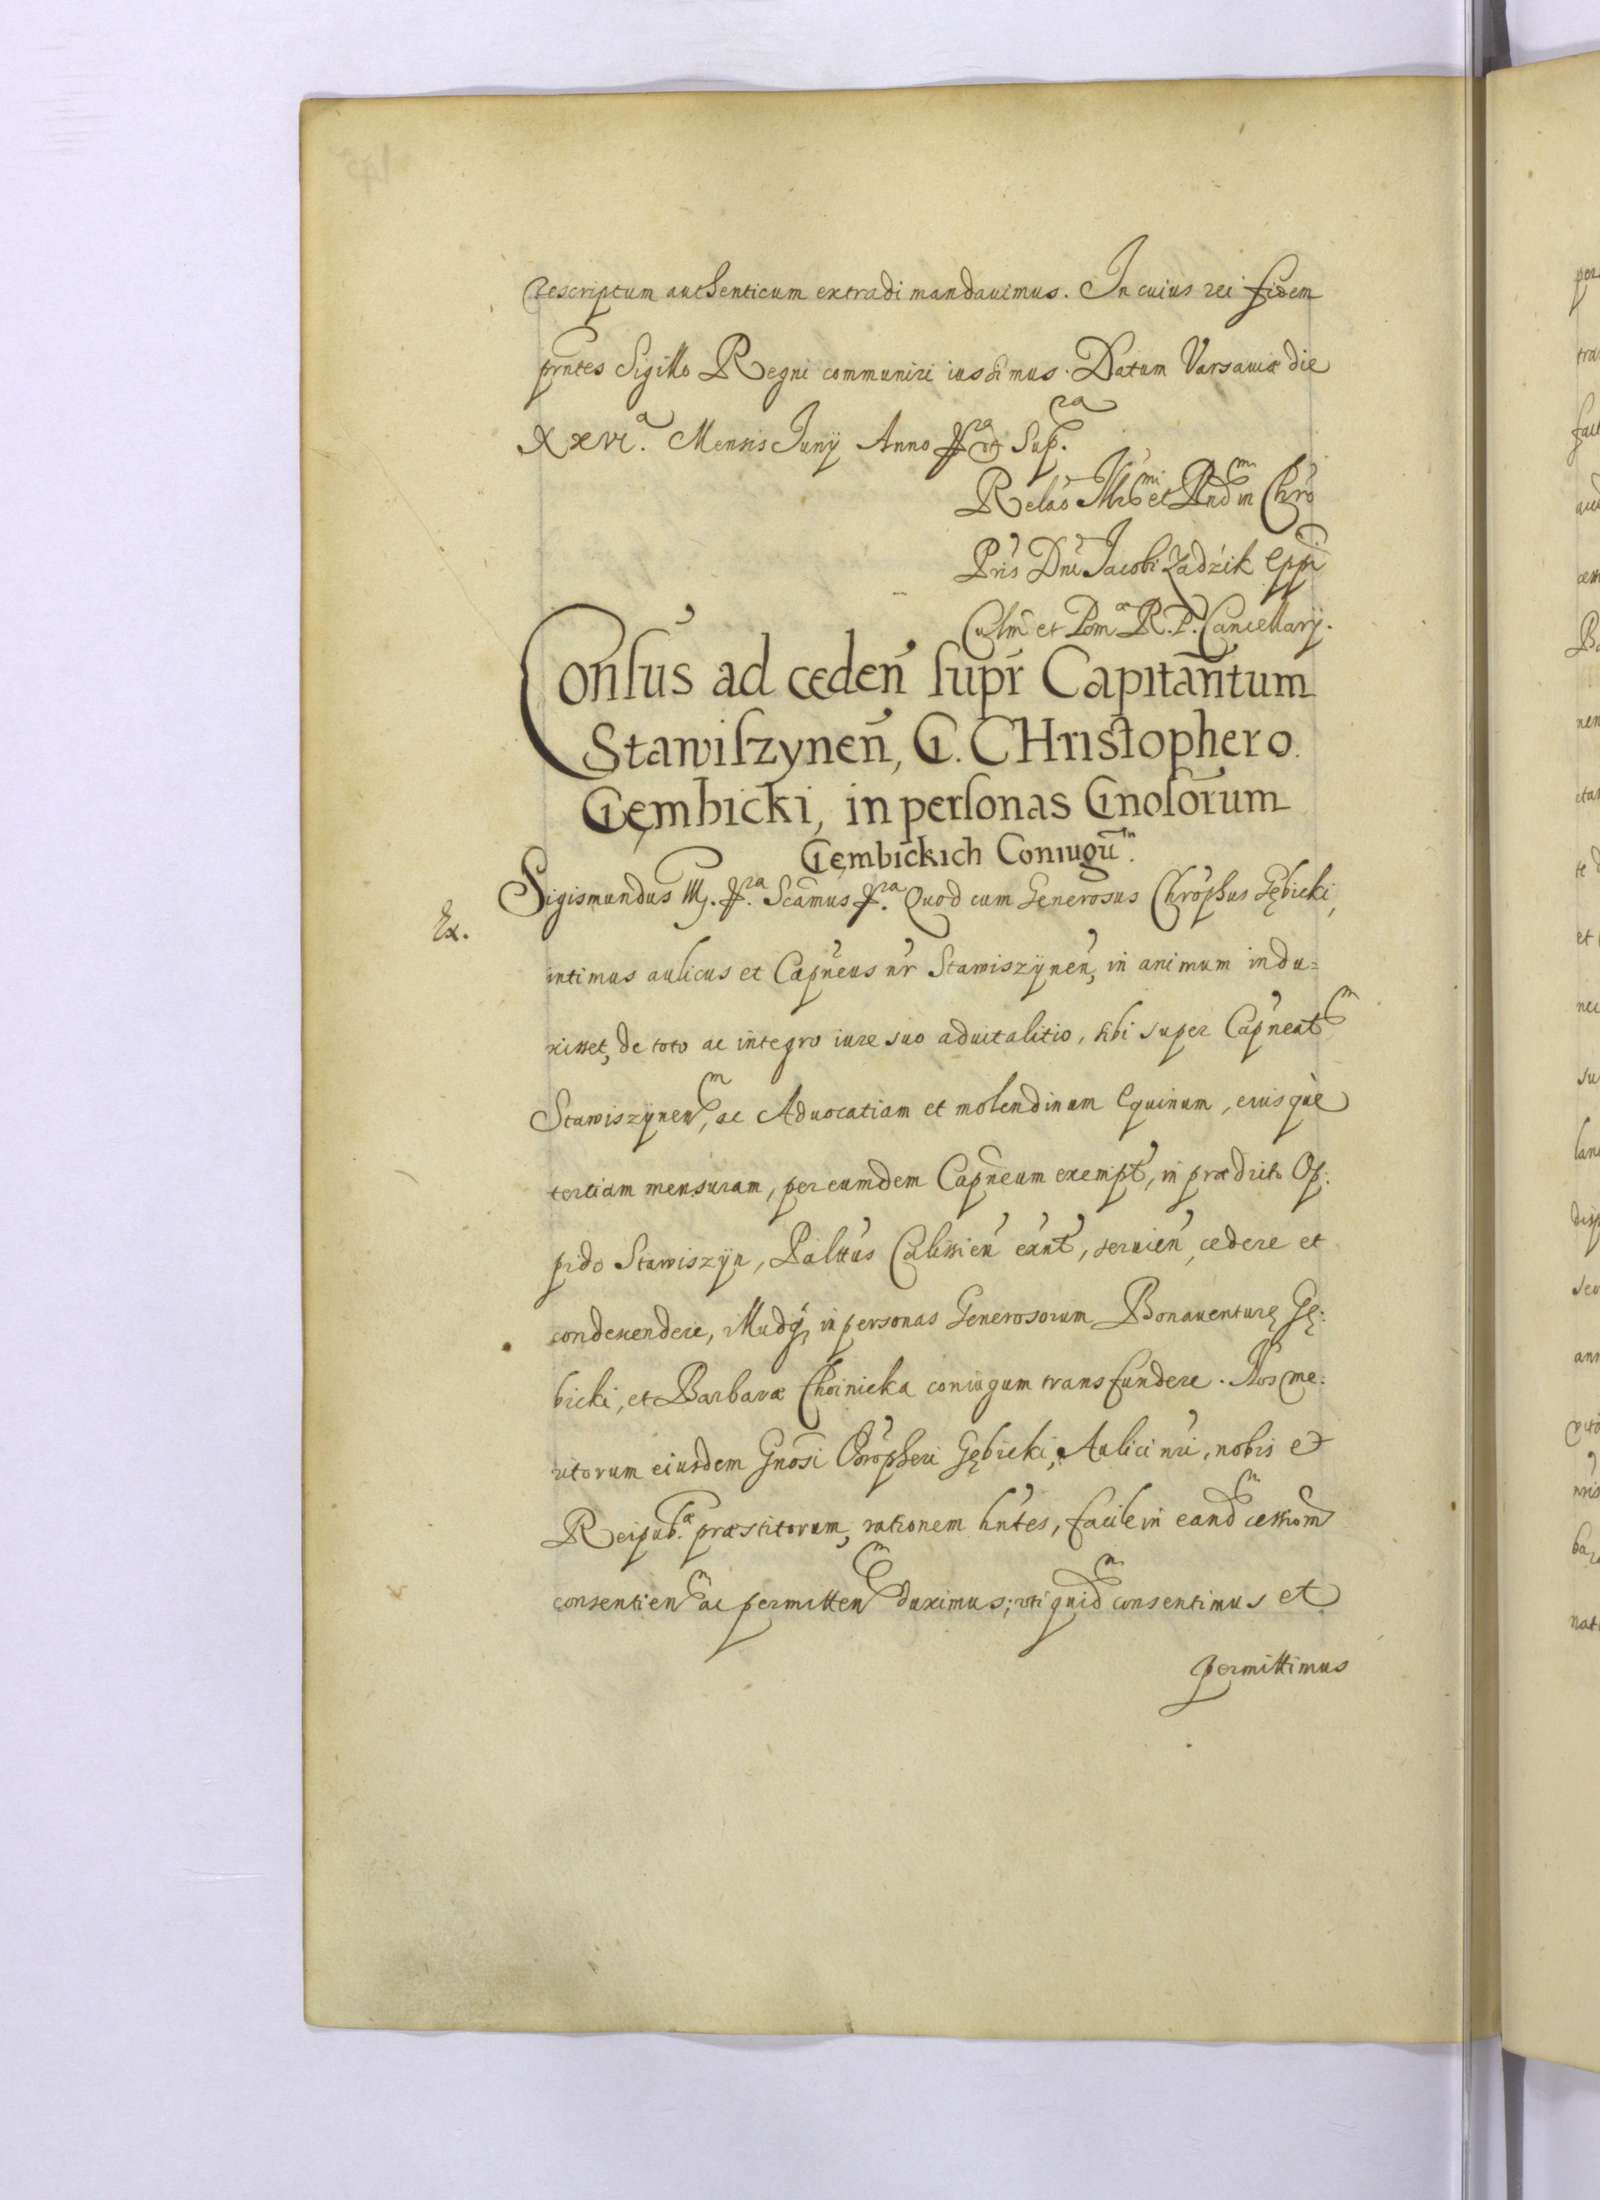 rescriptum authenticum extradi mandauimus. In cuius rei fidem
prntes Sigillo Regni communiri iussimus. Datum Varsauiæ die
XXVIª. Mensis Junÿ Anno ut Supra.
Relao Illrmi et Rndmi in Chro
Pris Dni Jacobi Zadzik Eppi
Culm et Pom R. P. Cancellarÿ.
Consus ad ceden supr Capitantum
Stawiszynen, G. CHristophero
Gęmbicki, in personas Gnosorum
Gęmbickich Coniugum.
Sigismundus III. Scamus Quod cum Generosus Chrophus Gębicki,
Ex.
intimus aulicus et Capneus nr Stawiszÿnen, in animum indu=
xisset, de toto ac integro iure suo aduitalitio, sibi super Capneatm
Stawiszÿnenm, ac Aduocatiam et molendinum Equinum, eiusque
tertiam mensuram, per eumdem Capneum exempt, in prædicto Op:
pido Stawiszÿn, Palttus Calissien exnt, seruien, cedere et
condescendere, illudq, in personas Generosorum Bonauenturę Gę:
bicki, et Barbaræ Choinicka coniugum transfundere. Nos me:
ritorum eiusdem Gnosi Chropheri Gębicki, Aulici nri, nobis et
Reipubæ præstitorum, rationem hntes, facile in eandm cessionm
consentienm ac permittenm duximus; uti quidm consentimus et
permittimus